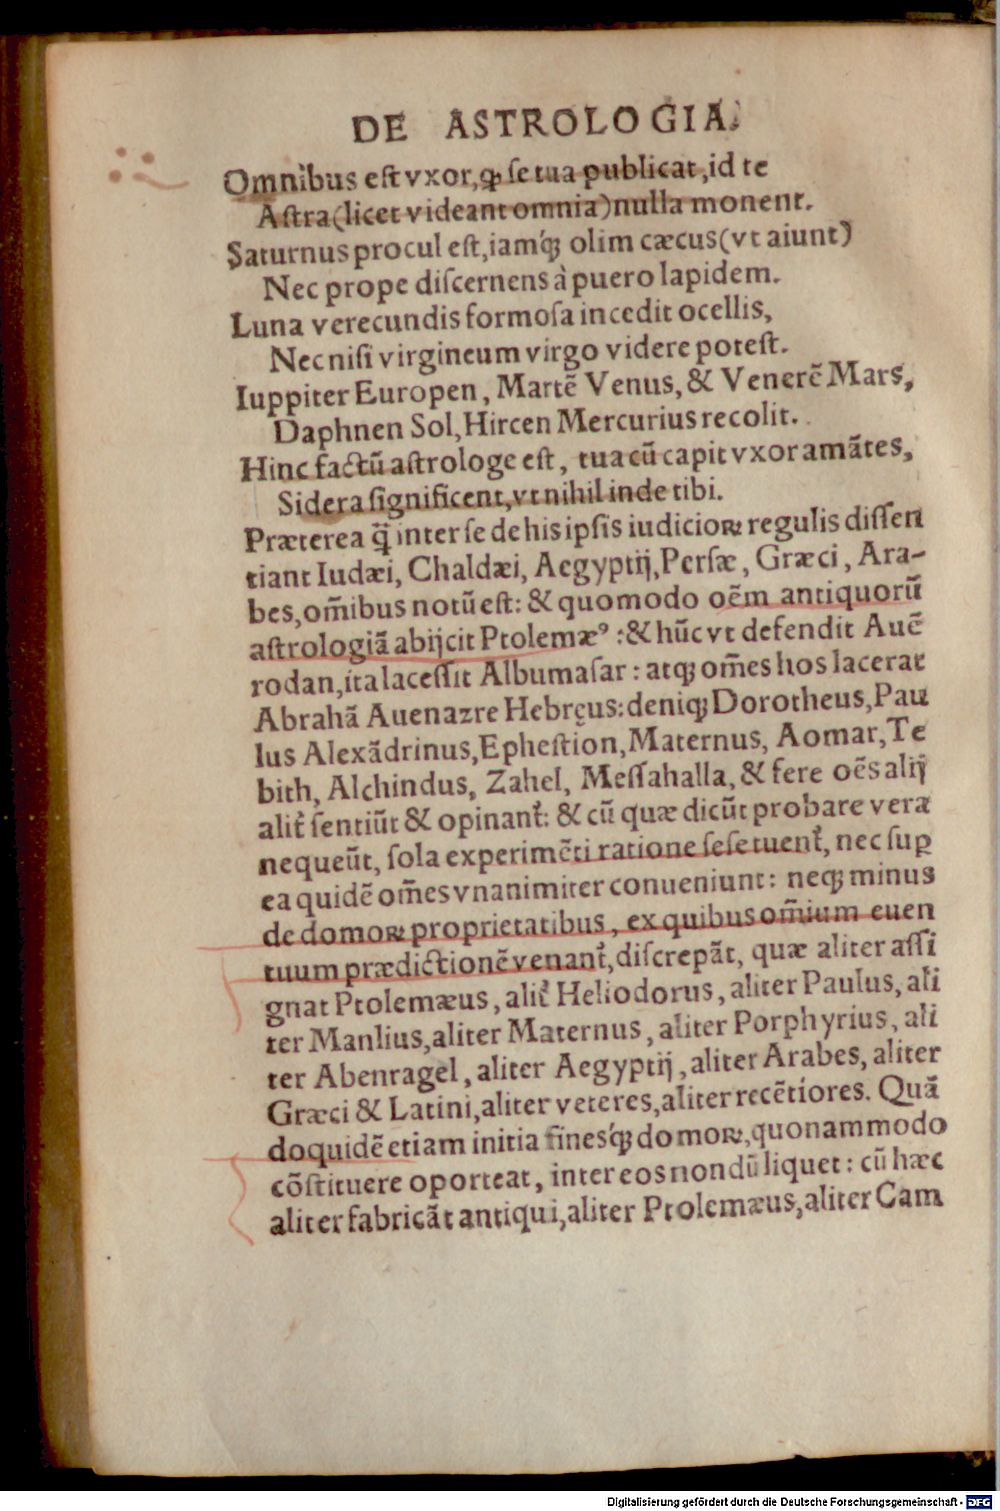 DE ASTROLOGIA.
Omnibus est vxor, ꝙ se tua publicat, id te
Astra (licet videant omnia) nulla monent.
Saturnus procul est, iamq́ꝫ olim cæcus (vt aiunt)
Nec prope discernens à puero lapidem.
Luna verecundis formosa incedit ocellis,
Nec nisi virgineum virgo videre potest.
Iuppiter Europen, Martē Venus, & Venerē Mars,
Daphnen Sol, Hircen Mercurius recolit.
Hinc factū astrologe est, tua cū capit vxor amātes,
Sidera significent, vt nihil inde tibi.
Præterea q̄ inter se de his ipsis iudicioꝝ regulis dissen
tiant Iudæi, Chaldæi, Aegyptij, Persæ, Græci, Ara-
bes, om̄ibus notū est: & quomodo oēm antiquorū
astrologiā abijcit Ptolemæꝰ: & hūc vt defendit Auē
rodan, ita lacessit Albumasar: atqꝫ om̄es hos lacerat
Abrahā Auenazre Hebręus: deniqꝫ Dorotheus, Pau
lus Alexādrinus, Ephestion, Maternus, Aomar, Te
bith, Alchindus, Zahel, Messahalla, & fere oēs alij
alit̃ sentiūt & opinant̃: & cū quæ dicūt probare vera
nequeūt, sola experimēti ratione sese tuent̃, nec suꝑ
ea quidē om̄es vnanimiter conueniunt: neqꝫ minus
de domoꝝ proprietatibus, ex quibus om̄ium euen
tuum prædictionē venant̃, discrepāt, quæ aliter assi
gnat Ptolemæus, alit̃ Heliodorus, aliter Paulus, ali
ter Manlius, aliter Maternus, aliter Porphyrius, ali
ter Abenragel, aliter Aegyptij, aliter Arabes, aliter
Græci & Latini, aliter veteres, aliter recētiores. Quā
doquidē etiam initia finesq́ꝫ domoꝝ, quonam modo
cōstituere oporteat, inter eos nondū liquet: cū hæc
aliter fabricāt antiqui, aliter Ptolemæus, aliter Cam
Digitalisierung gefördert durch die Deutsche Forschungsgemeinschaft - DFG